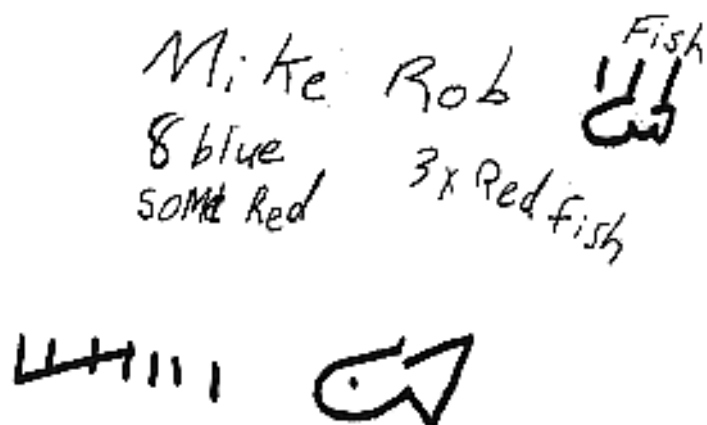 Mike Rob Fish
8 blue
some Red 3x Red fish